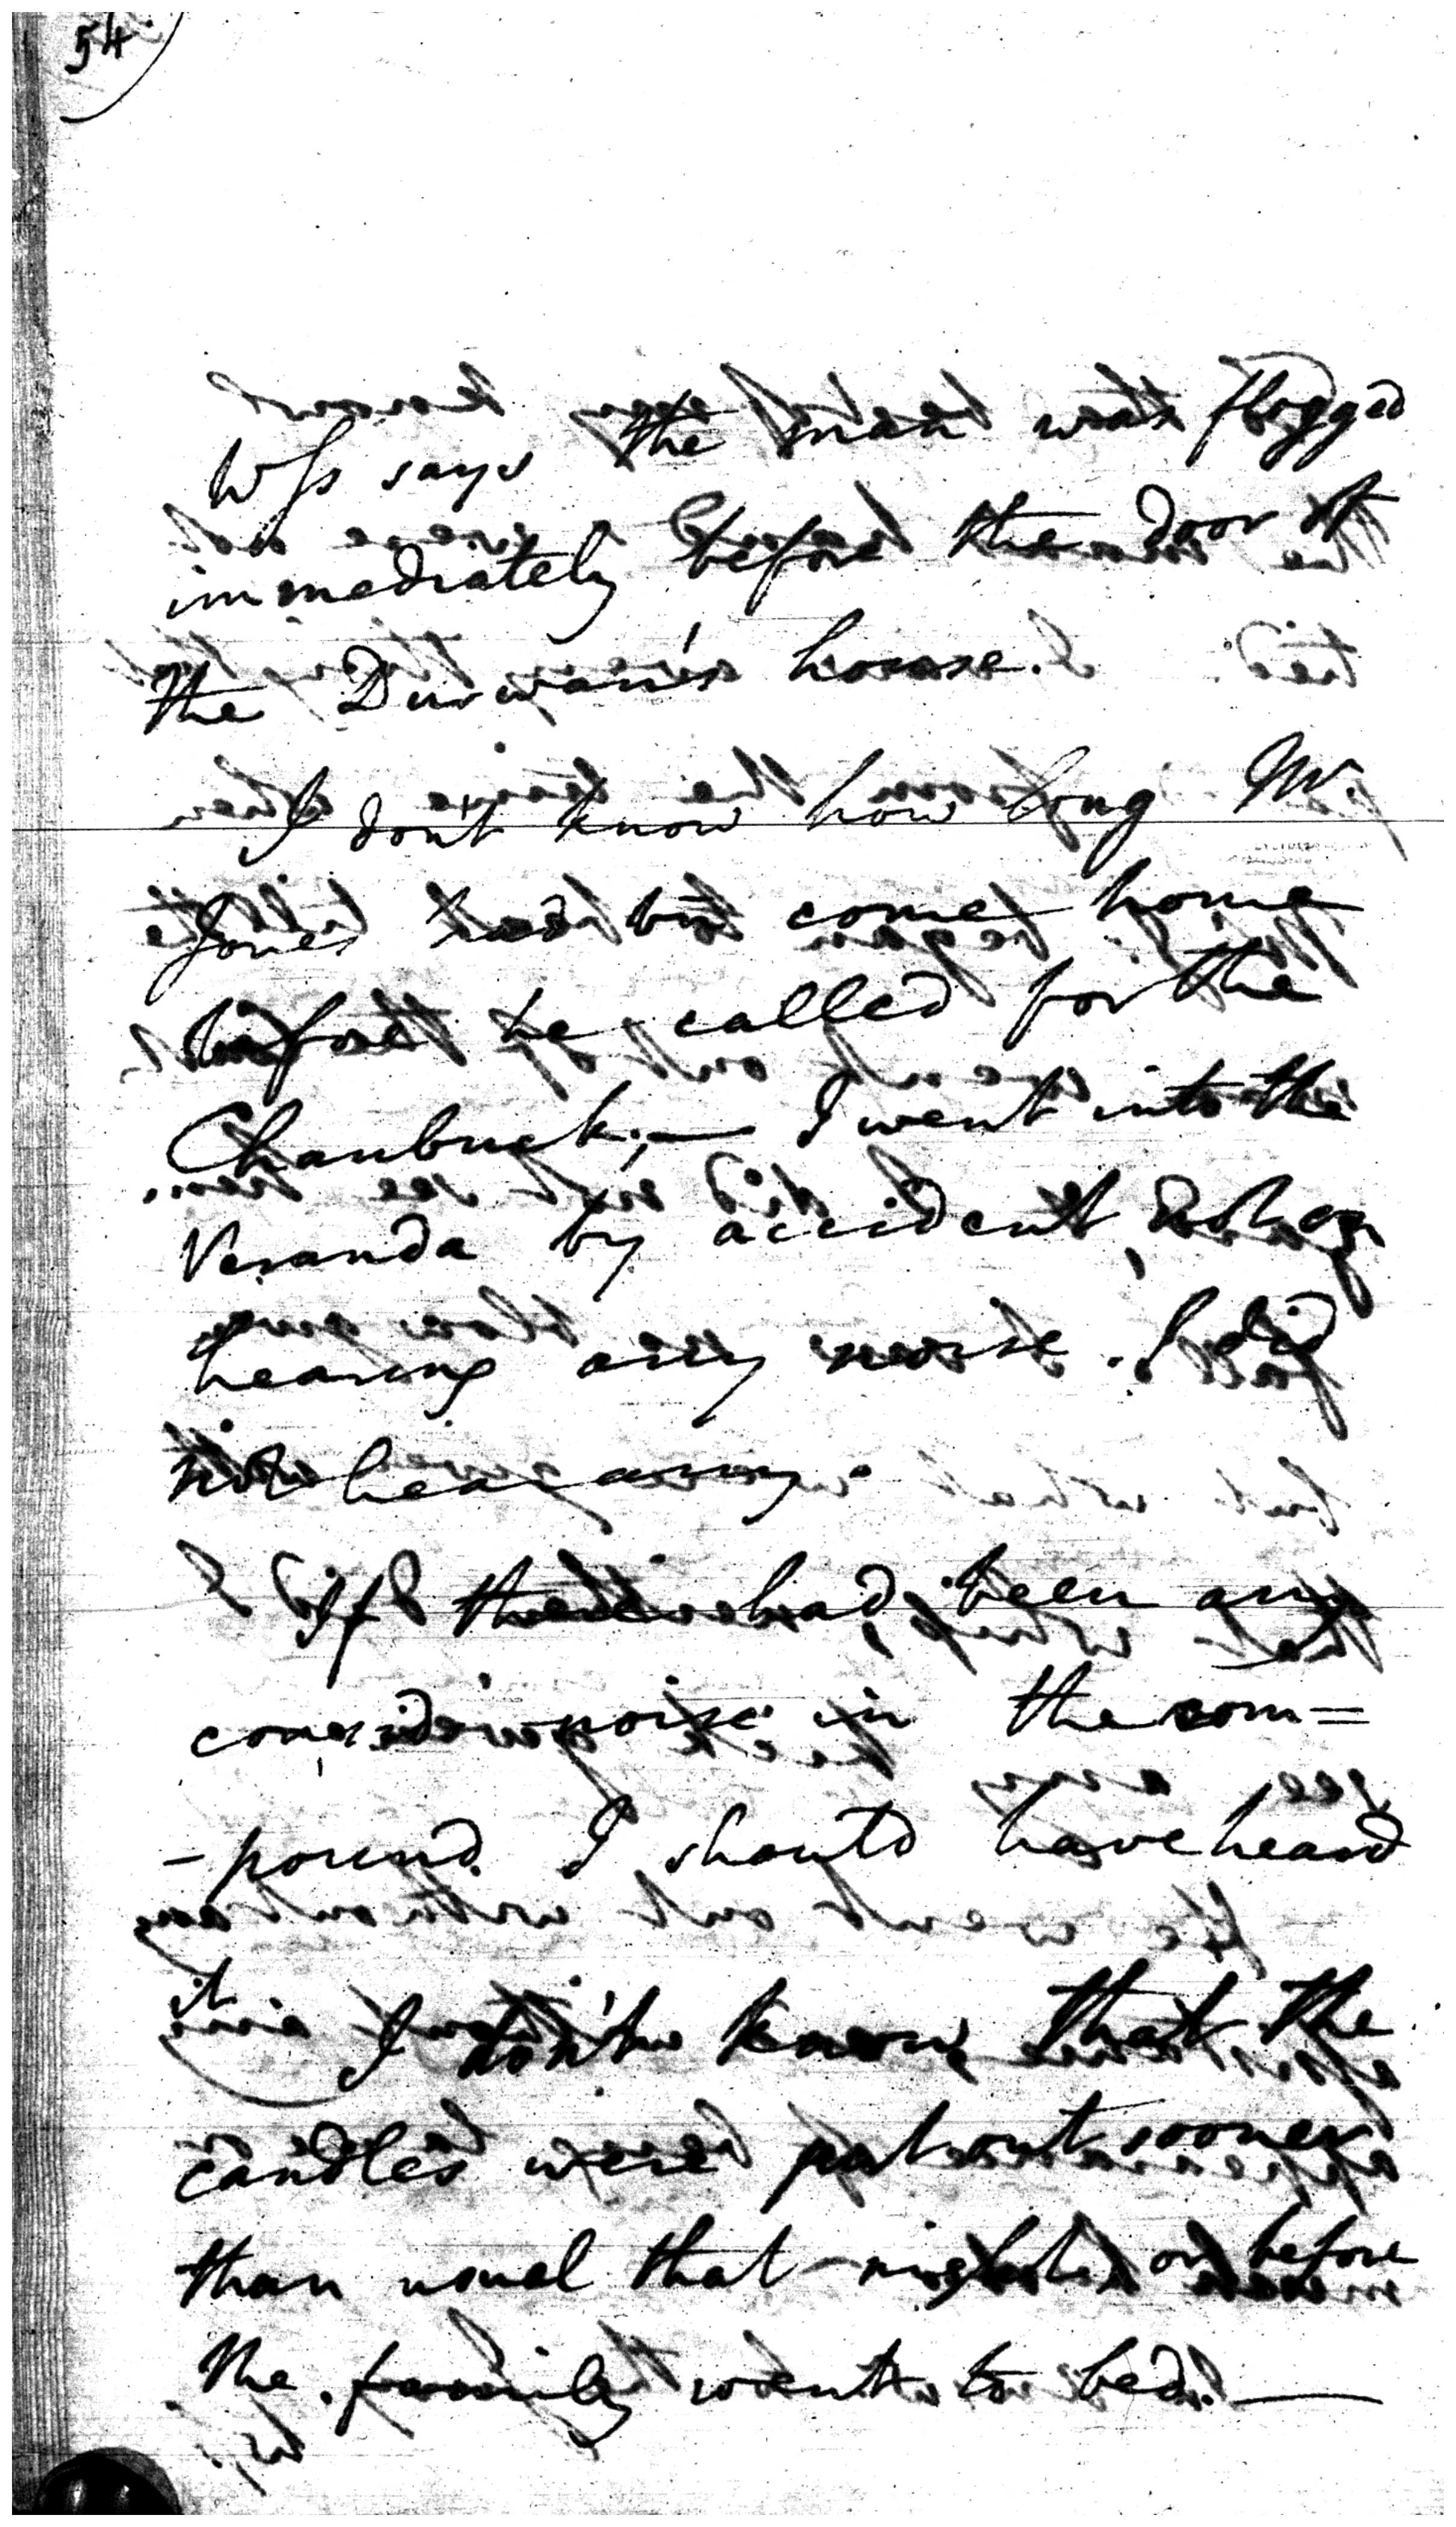 54
Wss says the man was flogged
immediately before the door of
the Durwan's house.
I don't know how long Mr.
Jones had bn come home
before he called for the
Chaubuck; — I went into the
Veranda by accident,
hearing any noise. I did
not hear any.
If there had been any
considˈ noise in the com=
-pound I should have heard
it
I don't know that the
candles were put out sooner
than usual that night or before
the family went to bed. —